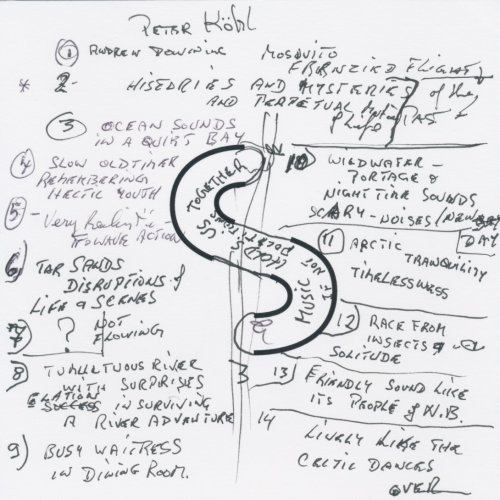 PETER KÖHL
① ANDREW DOWNING MOSQUITO
FRENZIED FLIGHT
* 2- HISTORIES AND MYSTERIES of the PAST
AND PERPETUAL of Life
③ OCEAN SOUNDS
IN A QUIET BAY
④ SLOW OLD TIMER
REMEMBERING
HECTIC YOUTH
5 - Very
TO WAVE ACTION
6) TAR SANDS
DISRUPTIONS of
LIFE & SCENES
7) ? NOT
FLOWING
8) TUMULTUOUS RIVER
WITH SURPRISES
ELATION SUCCESS IN SURVIVING
A RIVER ADVENTURE
9) BUSY WAITRESS
IN DINING ROOM.
HOLDS US TOGETHER
IF NOT MUSIC
10) WILDWATER -
PORTAGE &
NIGHT TIME SOUNDS
SCARY - NOISES / NEW
DAY
11 ARCTIC
TRANQUILITY
TIMELESSNESS
12) RACE FROM
INSECTS
SOLITUDE
3
13) FRIENDLY SOUND LIKE
ITS PEOPLE of N.B.
14
LIVELY LIKE THE
CELTIC DANCES
OVER